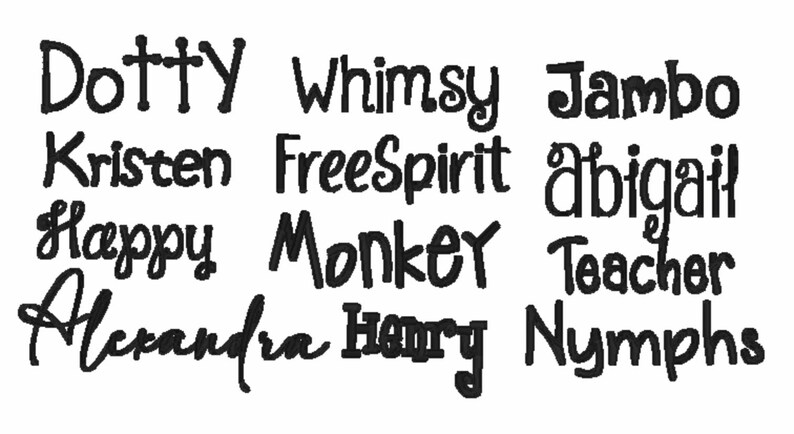 Dotty Whimsy Jambo
Kristen FreeSpirit Abigail
Happy Monkey Teacher
Alexandra Henry Nymphs